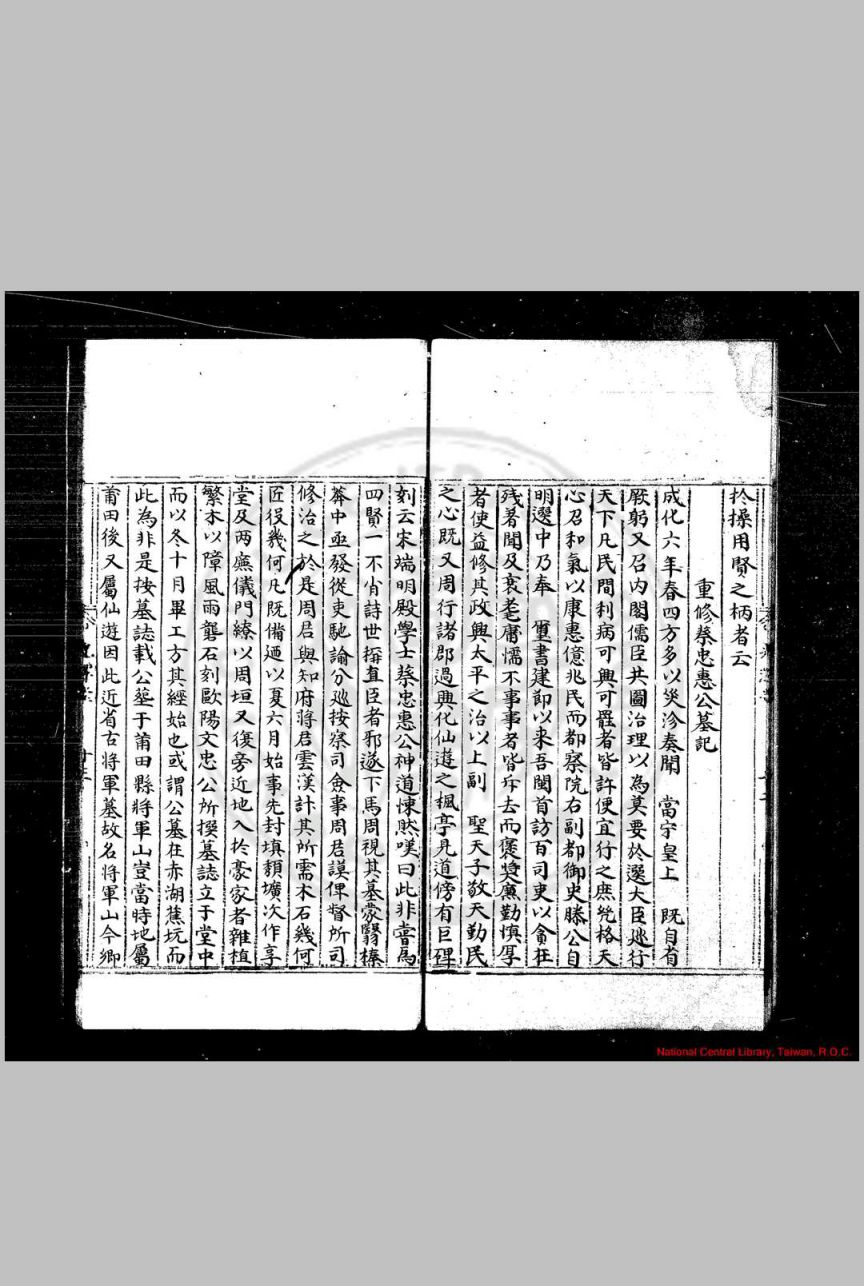 扵操用賢之柄者云
重修蔡忠惠公墓記
成化六年春四方多以災沴奏聞　當宁皇上　既自省
厥躬又召内閣儒臣共圖治理以為莫要於選大臣廵行
天下凡民間利病可興可罷者皆許便宜行之庶㡬格天
心召和氣以康惠億兆民而都察院右副都御史滕公自
明選中乃奉　璽書建節以来吾閩首訪百司吏以貪枉
残著聞及衰耄庸懦不事事者皆斥去而褒奬廉勤慎厚
者使益修其政興太平之治以上副　聖天子敬天勤民
之心既又周行諸郡過興化仙遊之楓亭見道傍有巨碑
刻云宋端明殿學士蔡忠惠公神道悚然嘆曰此非嘗為
四賢一不肖詩世稱直臣者邪遂下馬周視其墓蒙翳榛
莽中亟發從吏馳諭分廵按察司僉事周君謨俾督所司
修治之於是周君與知府蔣君雲漢計其所需木石幾何
匠役幾何凡既備廼以夏六月始事先封填頽壙次作享
堂及两廡儀門繚以周垣又復旁近地入扵豪家者雜植
繁木以障風雨礱石刻歐陽文忠公所撰墓誌立于堂中
而以冬十月畢工方其經始也或謂公墓在赤湖蕉坑而
此為非是按墓誌載公塟于莆田縣將軍山豈當時地屬
莆田後又屬仙遊因此近省古將軍墓故名將軍山今鄉
National Central Library, Taiwan, R.O.C.